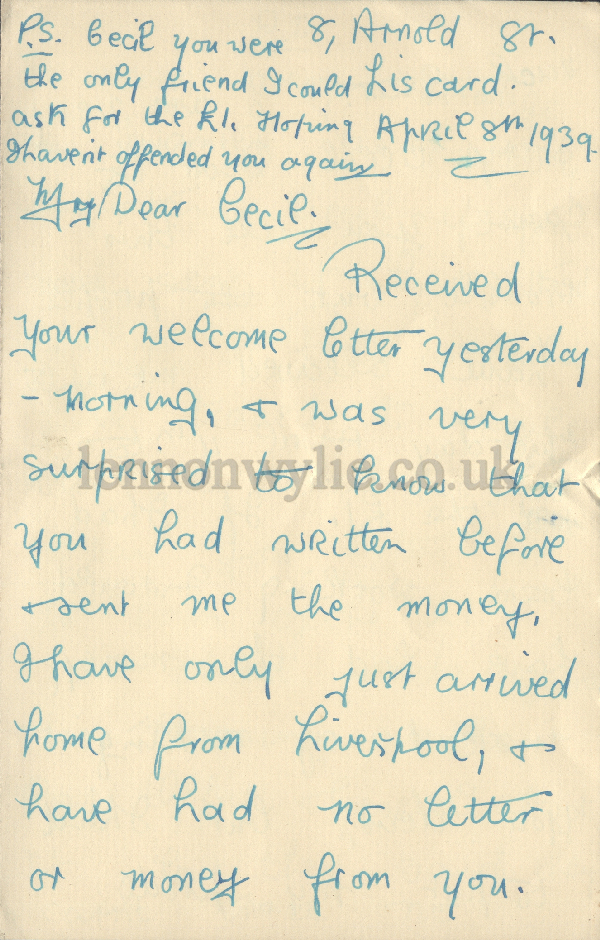 P.S. Cecil you were
the only friend I could
ask for the £1. Hoping
I haven't offended you again
8, Arnold St.
Liscard.
April 8th 1939.
My Dear Cecil.
Received
your welcome letter yesterday
- morning, & was very
surprised to know that
you had written before
& sent me the money,
I have only just arrived
home from Liverpool, &
have had no letter
or money from you.
lennonwylie.co.uk